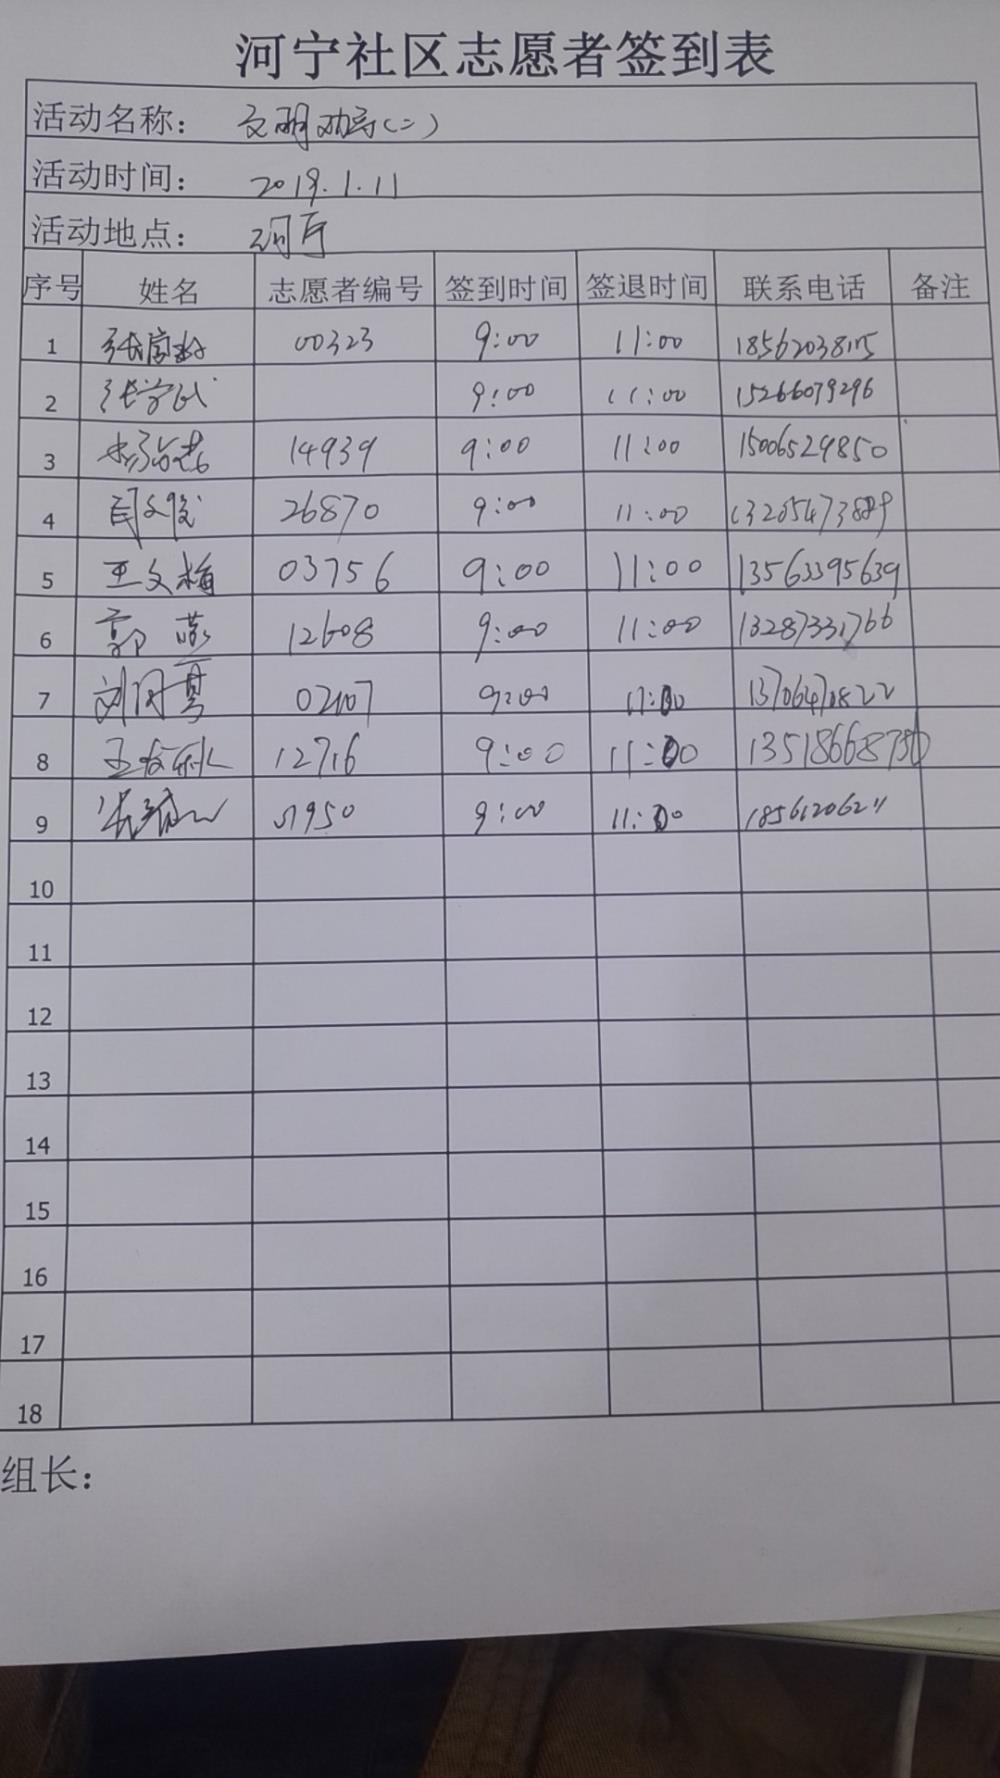 河宁社区志愿者签到表
活动名称： 文明劝导(二)
活动时间： 2019.1.11
活动地点：
序号 姓名 志愿者编号 签到时间 签退时间 联系电话 备注
1 00323 9:00 11:00
2 9:00 11:00 15266079296
3 14939 9:00 11:00 15006529850
4 26870 9:00 11:00
5 王文梅 03756 9:00 11:00 13563395639
6 郭 12608 9:00 11:00 13287331766
7 9:00 11:00 13706470822
8 12716 9:00 11:00
9 9:00 11:00
10
11
12
13
14
15
16
17
18
组长：